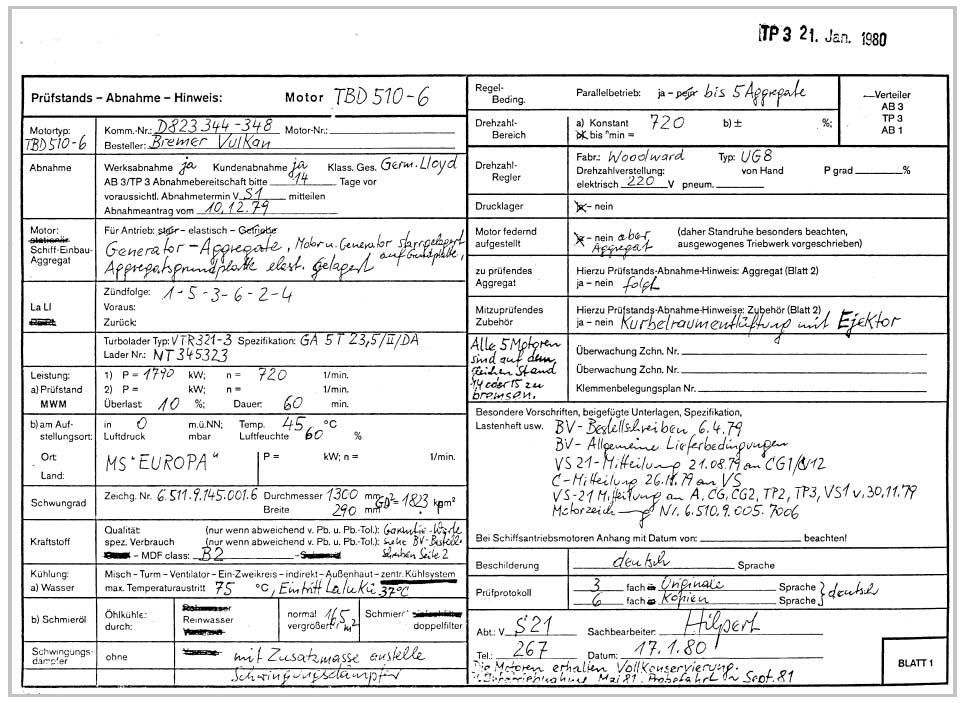 TP 3 21. Jan. 1980
Prüfstands – Abnahme – Hinweis: Motor TBD 510-6
Motortyp: TBD 510-6
Komm.-Nr.: D823344-348 Motor-Nr.:
Besteller: Bremer Vulkan
Abnahme
Werksabnahme ja Kundenabnahme ja Klass. Ges. Germ. Lloyd
AB 3/TP 3 Abnahmebereitschaft bitte 14 Tage vor
voraussichtl. Abnahmetermin V S1 mitteilen
Abnahmeantrag vom 10.12.79
Motor:
stationär
Schiff-Einbau-
Aggregat
Für Antrieb: starr – elastisch – Getriebe
Generator-Aggregate, Motor u. Generator starrgelagert auf Grundplatte,
Aggregatsgrundplatte elast. gelagert
La LI
Zündfolge: 1-5-3-6-2-4
Voraus:
Zurück:
Turbolader Typ: VTR321-3 Spezifikation: GA 5T 23,5/II/DA
Lader Nr.: NT 345323
Leistung:
a) Prüfstand
MWM
1) P = 1790 kW; n = 720 1/min.
2) P = kW; n = 1/min.
Überlast: 10 %; Dauer: 60 min.
b) am Auf-
stellungsort:
in 0 m.ü.NN; Temp. 45 °C
Luftdruck mbar Luftfeuchte 60 %
Ort:
Land:
MS "EUROPA"
P = kW; n = 1/min.
Schwungrad
Zeichg. Nr. 6.511.9.145.001.6 Durchmesser 1300 mm GD² = 1823 kpm²
Breite 290 mm
Kraftstoff
Qualität (nur wenn abweichend v. Pb. u. Pb.-Tol.): Garantie-Werte
spez. Verbrauch (nur wenn abweichend v. Pb. u. Pb.-Tol.): siehe BV-Bestell-
– MDF class: B2 schreiben Seite 2
Kühlung:
a) Wasser
Misch – Turm – Ventilator – Ein-Zweikreis – indirekt – Außenhaut – zentr. Kühlsystem
max. Temperaturaustritt 75 °C, Eintritt LaLuKü 37°C
b) Schmieröl
Öhlkühle: durch:
Rohwasser
Reinwasser
normal vergrößert 16,5 m²
Schmier doppelfilter
Schwingungs-
dämpfer
ohne
mit Zusatzmasse anstelle
Schwingungsdämpfer
Regel-
Beding.
Parallelbetrieb: ja – nein bis 5 Aggregate
Drehzahl-
Bereich
a) Konstant 720 b) ± %;
bis n min =
Drehzahl-
Regler
Fabr.: Woodward Typ: UG8
Drehzahlverstellung: von Hand P grad %
elektrisch 220 V pneum.
Drucklager
ja – nein
Motor federnd
aufgestellt
ja – nein aber Aggregat
(daher Standruhe besonders beachten,
ausgewogenes Triebwerk vorgeschrieben)
zu prüfendes
Aggregat
Hierzu Prüfstands-Abnahme-Hinweis: Aggregat (Blatt 2)
ja – nein folgt
Mitzuprüfendes
Zubehör
Hierzu Prüfstands-Abnahme-Hinweise: Zubehör (Blatt 2)
ja – nein Kurbelraumentlüftung mit Ejektor
Alle 5 Motoren
sind auf dem
gleichen Stand
14 oder 15 zu
bremsen.
Überwachung Zchn. Nr.
Überwachung Zchn. Nr.
Klemmenbelegungsplan Nr.
Besondere Vorschriften, beigefügte Unterlagen, Spezifikation,
Lastenheft usw. BV-Bestellschreiben 6.4.79
BV-Allgemeine Lieferbedingungen
VS 21-Mitteilung 21.08.79 an CG1/
C-Mitteilung 26.11.79 an VS
VS-21 Mitteilung an A, CG, CG2, TP2, TP3, VS1 v. 30.11.79
Motorzeich g Nr. 6.510.9.005.7006
Bei Schiffsantriebsmotoren Anhang mit Datum von: beachten!
Beschilderung deutsch Sprache
Prüfprotokoll
3 fach Originale Sprache
6 fach Kopien Sprache } deutsch
Abt.: V S21 Sachbearbeiter: Hilpert
Tel.: 267 Datum: 17.1.80
Die Motoren erhalten Vollkonservierung.
Mai 81. Probefahrt ~ Sept. 81
– Verteiler
AB 3
TP 3
AB 1
BLATT 1